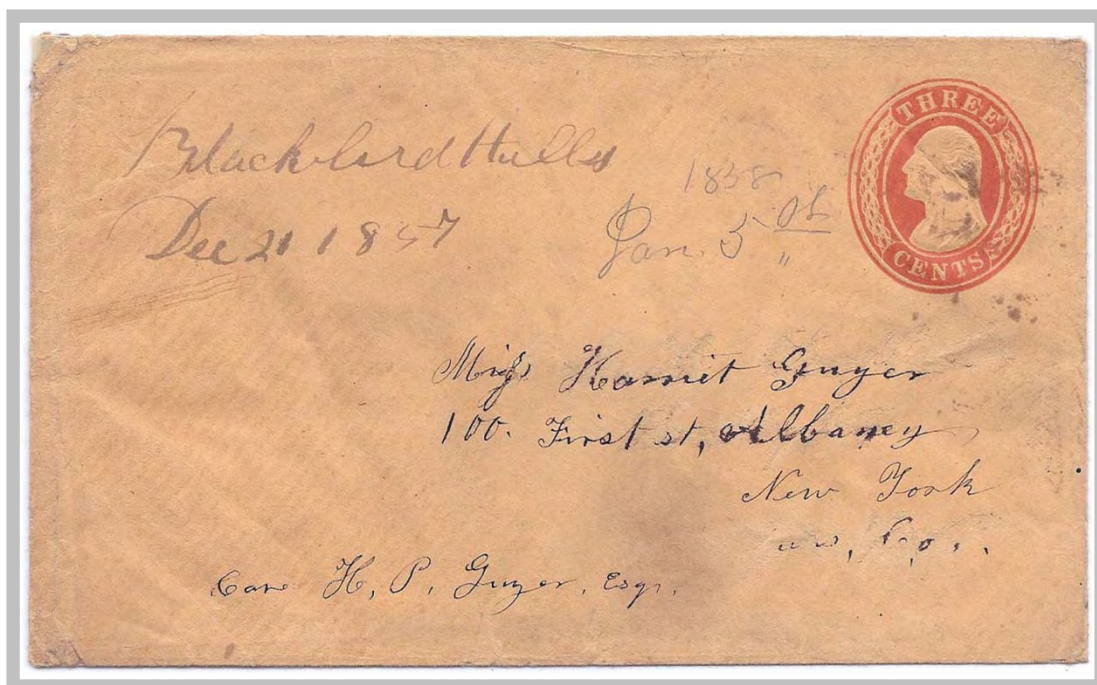 Blackbird Hills
Dec 21 1857
1858
Jan. 5
THREE
CENTS
Miss Harriet Guyer
100. First st, Albaney
New York
Care H, P, Guyer, Esqr,